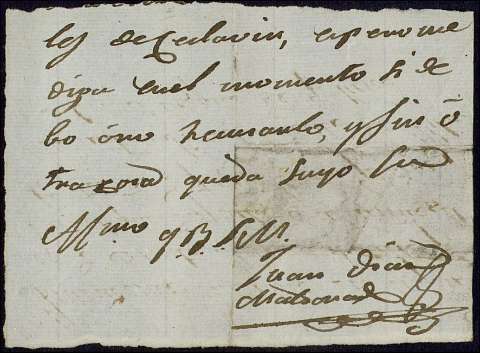 los de Ceclavin, espero me
diga enel momento si de
bo óno hacuarlo, y sin ó
tra cosa queda suyo su
Affmo q. B. S. M.
Juan Dias
Maldonado